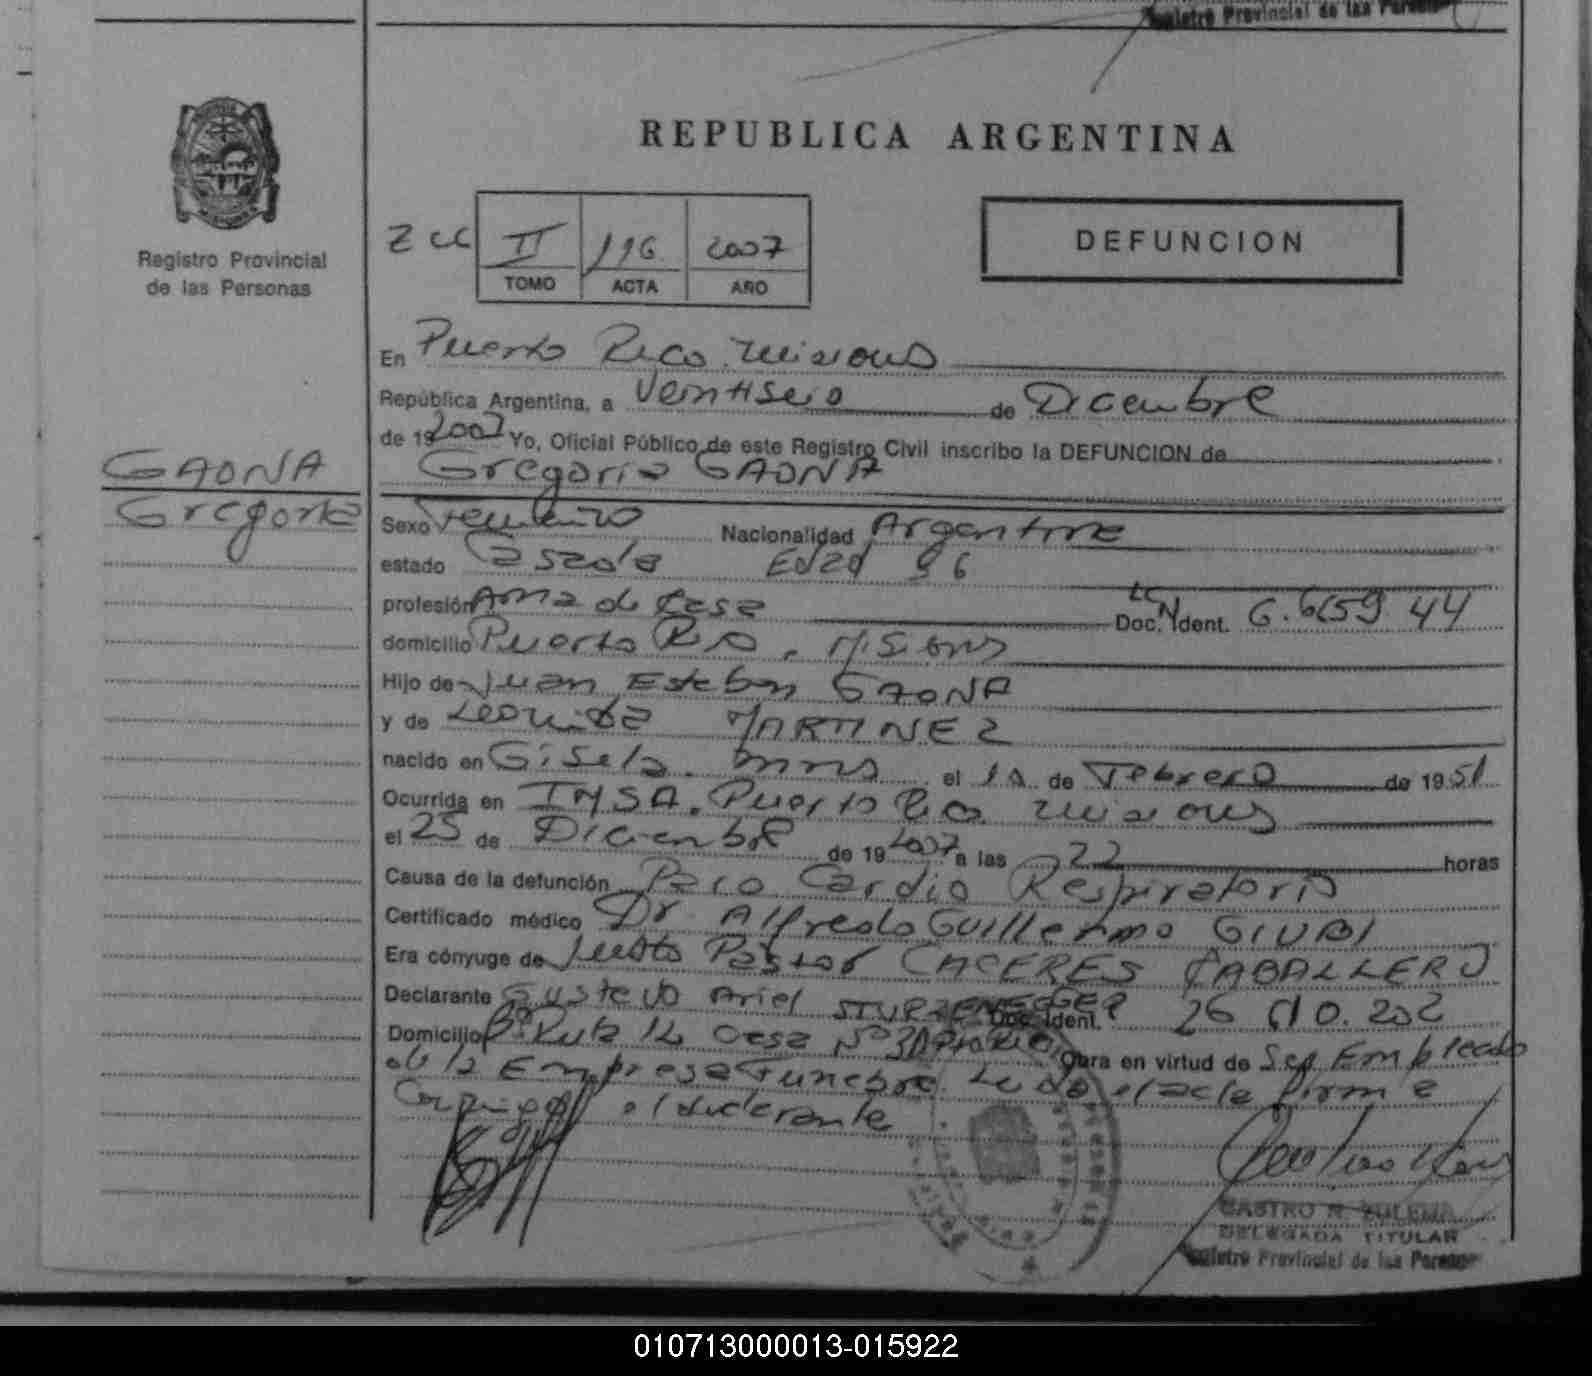 Registro Provincial de las Person
REPUBLICA ARGENTINA
Registro Provincial
de las Personas
II 196 2007
TOMO ACTA AÑO
DEFUNCION
En Puerto Rico. Misiones
República Argentina, a Veintiseis de Diciembre
de 19 2007 Yo, Oficial Público de este Registro Civil inscribo la DEFUNCION de
Gregoria GAONA
GAONA
Gregoria
Sexo Femenino Nacionalidad Argentina
estado Casada Edad 56
profesión Ama de Casa Doc. Ident. 6.659.44
LC N
domicilio Puerto Rico. Misiones
Hijo de Juan Esteban GAONA
y de Leonida MARTINEZ
nacido en Gisela. Mnes el de Febrero de 1951
Ocurrida en IMSA. Puerto Rico. Misiones
el 25 de Diciembre de 19 2007 a las 22 horas
Causa de la defunción Paro Cardio Respiratorio
Certificado médico Dr. Alfredo Guillermo GIUBI
Era cónyuge de Justo Pastor CACERES CABALLERO
Declarante Gustavo Ariel STURZENEGGER Doc. Ident. 26 202
Domicilio Bº Ruta 12 Casa Nº Obra en virtud de Ser Empleado
de la Empresa Funebre. Leida el acta firma
Conmigo el declarante
CASTRO N. ZULEMA
DELEGADA TITULAR
Registro Provincial de las Person
010713000013-015922